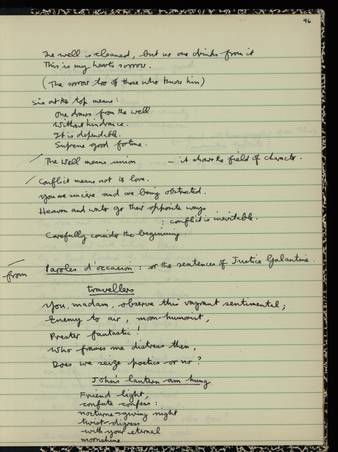 96
The well is cleaned, but no one drinks from it
This is my heart's sorrow.
(The sorrow too of those who know him)
Six at the top means:
One draws from the well
Without hindrance.
It is dependable.
Supreme good fortune.
The Well means union — it shows the field of character.
Conflict means not to love.
you are sincere and are being obstructed.
Heaven and water go their opposite ways
: conflict is inevitable.
Carefully consider the beginning.
from Paroles d'occasion: or the sentences of Justice Galantine.
travellers
You, madam, observe this vagrant sentimental;
Enemy to air,
Preter fantastic!
Who frames me distress then,
Does we seize poetics or no?
John's lantern am hung
Friend light,
confute confess:
nocturne-giving night
twist-digress
with your eternal
moonshine